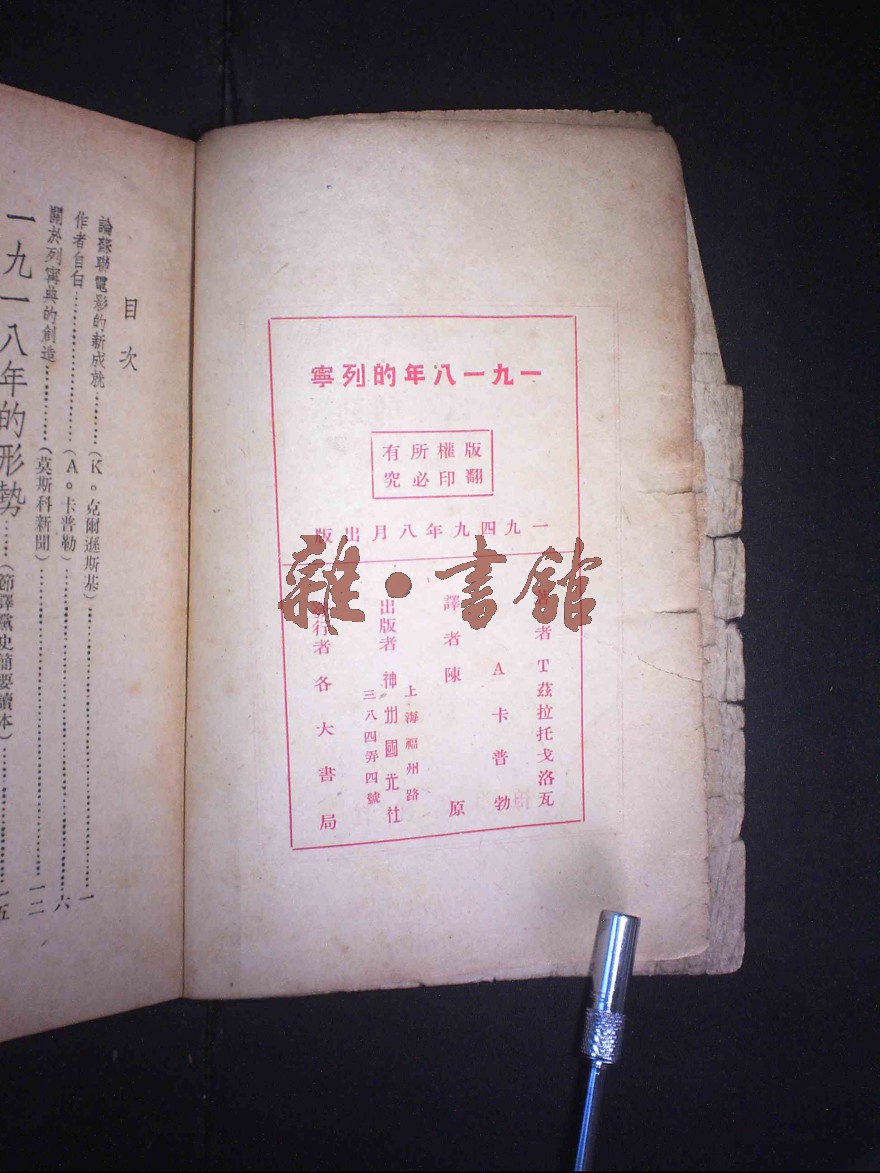 一九一八年的列寧
版權所有
翻印必究
一九四九年八月出版
者 T 茲拉托戈洛瓦
A 卡普勃
譯者 陳原
出版者 神州國光社
上海福州路
三八四弄四號
行者 各大書局
雜·書館
目次
論蘇聯電影的新成就………(K。克爾遜斯基)………一
作者自白………(A。卡普勒)………六
關於列寧典的創造………(莫斯科新聞)………一二
一九一八年的形勢……(節譯黨史簡要讀本)………一五